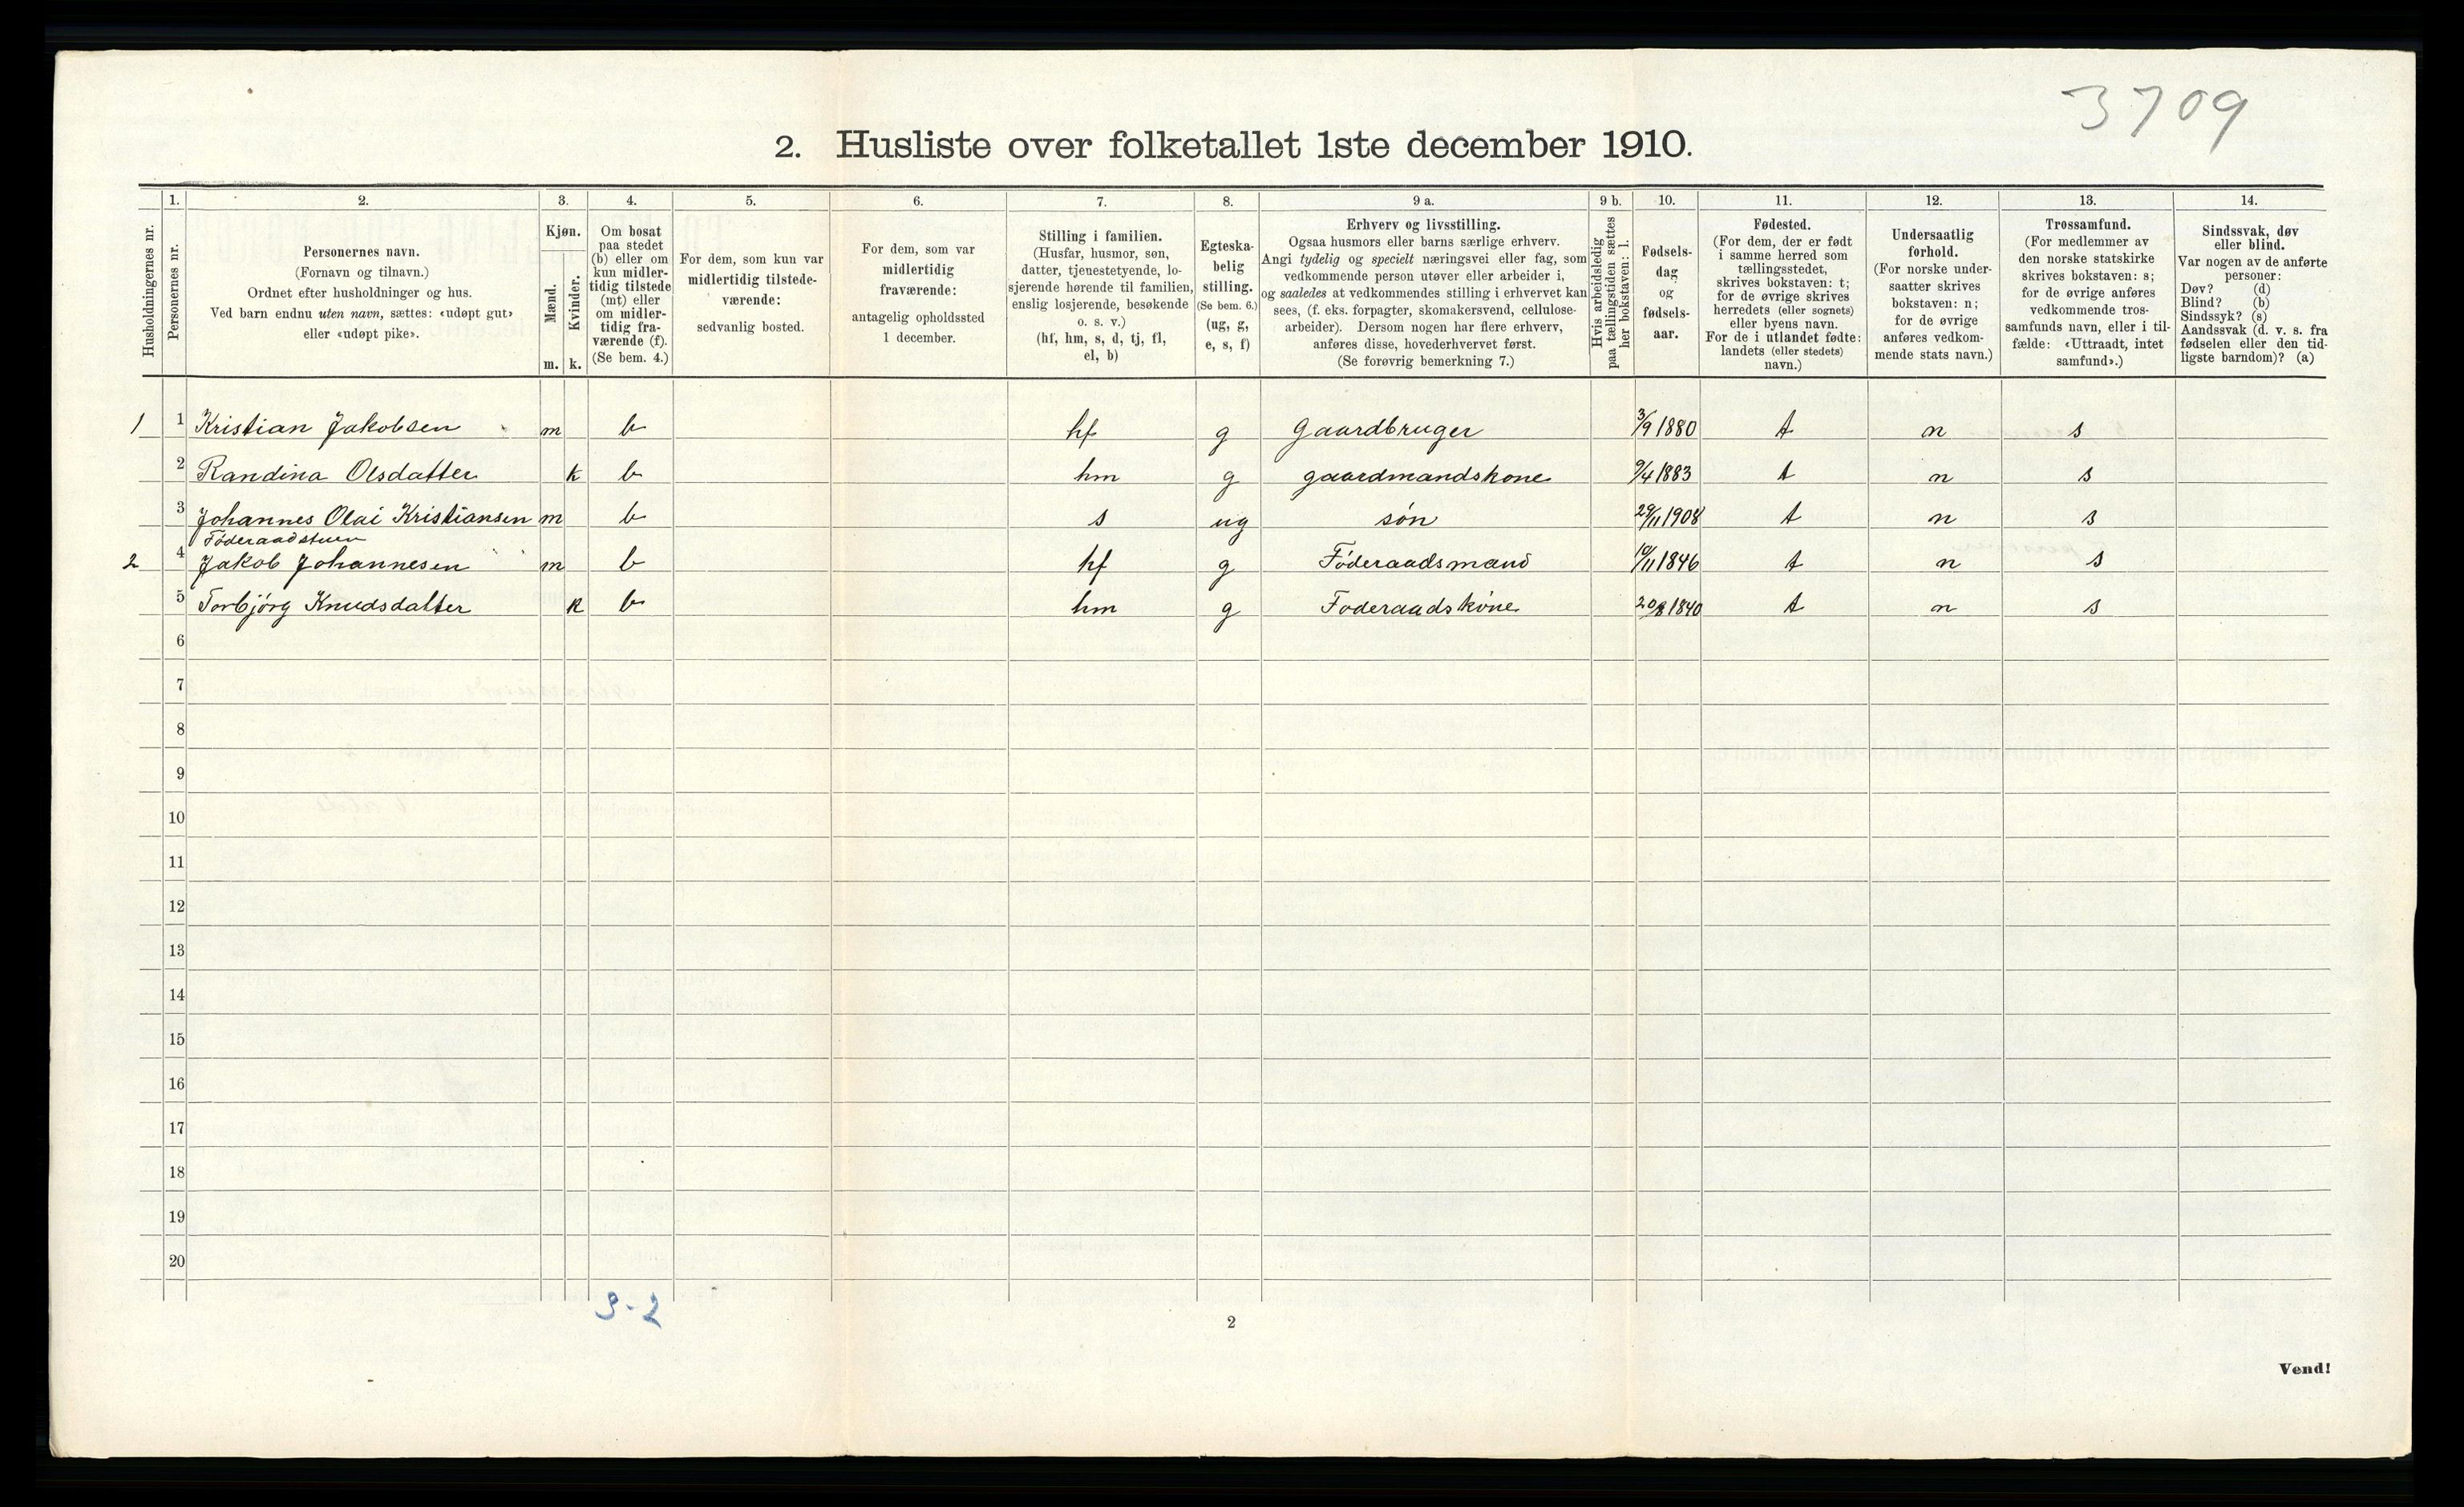 3709
2. Husliste over folketallet 1ste december 1910.
Husholdningernes nr.
1.
Personernes nr.
2.
Personernes navn.
(Fornavn og tilnavn.)
Ordnet efter husholdninger og hus.
Ved barn endnu uten navn, sættes: «udøpt gut»
eller «udøpt pike».
3.
Kjøn.
Mænd.
m.
Kvinder.
k.
4.
Om bosat
paa stedet
(b) eller om
kun midler-
tidig tilstede
(mt) eller
om midler-
tidig fra-
værende (f).
(Se bem. 4.)
5.
For dem, som kun var
midlertidig tilstede-
værende:
sedvanlig bosted.
6.
For dem, som var
midlertidig
fraværende:
antagelig opholdssted
1 december.
7.
Stilling i familien.
(Husfar, husmor, søn,
datter, tjenestetyende, lo-
sjerende hørende til familien,
enslig losjerende, besøkende
o. s. v.)
(hf, hm, s, d, tj, fl,
el, b)
8.
Egteska-
belig
stilling.
(Se bem. 6.)
(ug, g,
e, s, f)
9 a.
Erhverv og livsstilling.
Ogsaa husmors eller barns særlige erhverv.
Angi tydelig og specielt næringsvei eller fag, som
vedkommende person utøver eller arbeider i,
og saaledes at vedkommendes stilling i erhvervet kan
sees, (f. eks. forpagter, skomakersvend, cellulose-
arbeider). Dersom nogen har flere erhverv,
anføres disse, hovederhvervet først.
(Se forøvrig bemerkning 7.)
9 b.
Hvis arbeidsledig
paa tællingstiden sættes
her bokstaven: l.
10.
Fødsels-
dag
og
fødsels-
aar.
11.
Fødested.
(For dem, der er født
i samme herred som
tællingsstedet,
skrives bokstaven: t;
for de øvrige skrives
herredets (eller sognets)
eller byens navn.
For de i utlandet fødte:
landets (eller stedets)
navn.)
12.
Undersaatlig
forhold.
(For norske under-
saatter skrives
bokstaven: n;
for de øvrige
anføres vedkom-
mende stats navn.)
13.
Trossamfund.
(For medlemmer av
den norske statskirke
skrives bokstaven: s;
for de øvrige anføres
vedkommende tros-
samfunds navn, eller i til-
fælde: «Uttraadt, intet
samfund».)
14.
Sindssvak, døv
eller blind.
Var nogen av de anførte
personer:
Døv? (d)
Blind? (b)
Sindssyk? (s)
Aandssvak (d. v. s. fra
fødselen eller den tid-
ligste barndom)? (a)
1 1 Kristian Jakobsen m b hf g Gaardbruger 3/9 1880 t n s
2 Randina Olsdatter k b hm g gaardmandskone 9/4 1883 t n s
3 Johannes Olai Kristiansen m b s ug søn 29/11 1908 t n s
Føderaadstuen
2 4 Jakob Johannesen m b hf g Føderaadsmand 10/11 1846 t n s
5 Torbjørg Knudsdatter k b hm g Foderaadskone 20/8 1840 t n s
6
7
8
9
10
11
12
13
14
15
16
17
18
19
20
3-2
2
Vend!